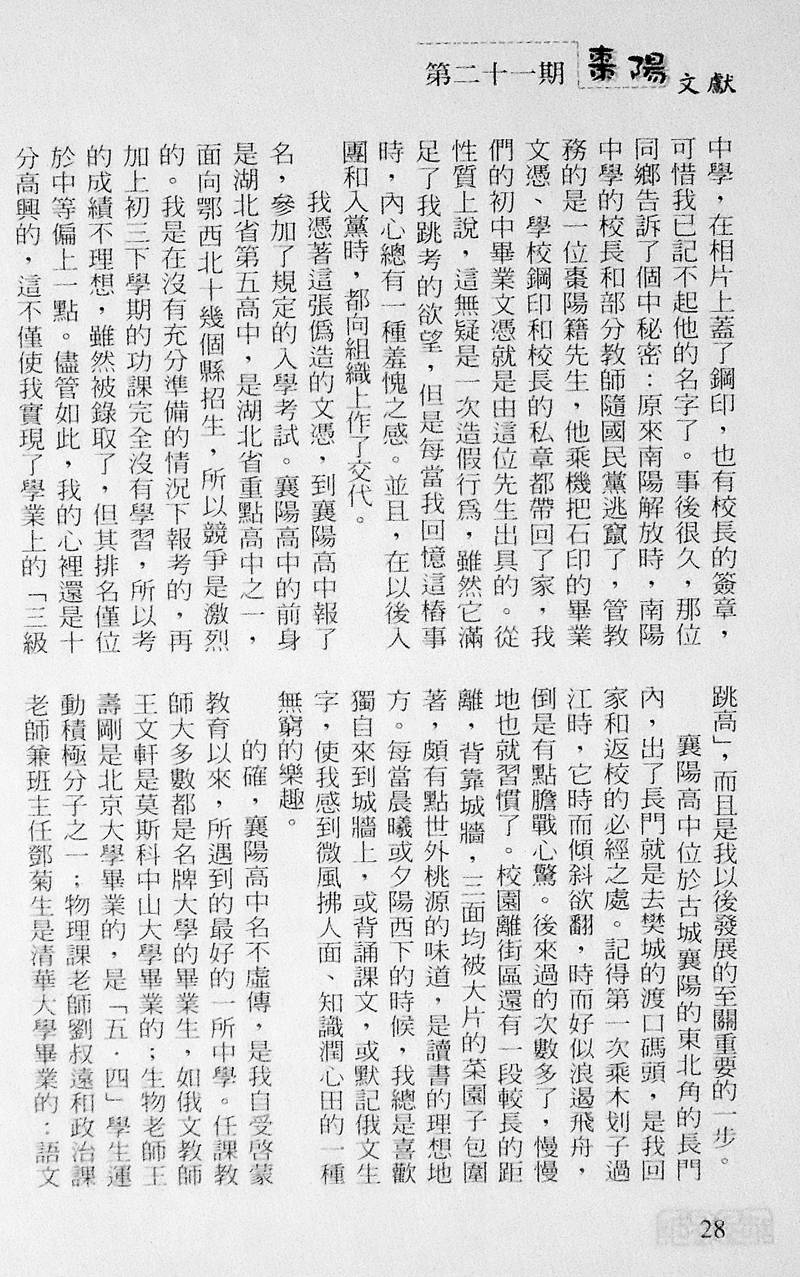 第二十一期 棗陽文獻
中學，在相片上蓋了鋼印，也有校長的簽章，
可惜我已記不起他的名字了。事後很久，那位
同鄉告訴了個中秘密：原來南陽解放時，南陽
中學的校長和部分教師隨國民黨逃竄了，管教
務的是一位棗陽籍先生，他乘機把石印的畢業
文憑、學校鋼印和校長的私章都帶回了家，我
們的初中畢業文憑就是由這位先生出具的。從
性質上說，這無疑是一次造假行為，雖然它滿
足了我跳考的欲望，但是每當我回憶這樁事
時，內心總有一種羞愧之感。並且，在以後入
團和入黨時，都向組織上作了交代。
我憑著這張偽造的文憑，到襄陽高中報了
名，參加了規定的入學考試。襄陽高中的前身
是湖北省第五高中，是湖北省重點高中之一，
面向鄂西北十幾個縣招生，所以競爭是激烈
的。我是在沒有充分準備的情況下報考的，再
加上初三下學期的功課完全沒有學習，所以考
的成績不理想，雖然被錄取了，但其排名僅位
於中等偏上一點。儘管如此，我的心裡還是十
分高興的，這不僅使我實現了學業上的「三級
跳高」，而且是我以後發展的至關重要的一步。
襄陽高中位於古城襄陽的東北角的長門
內，出了長門就是去樊城的渡口碼頭，是我回
家和返校的必經之處。記得第一次乘木划子過
江時，它時而傾斜欲翻，時而好似浪遏飛舟，
倒是有點膽戰心驚。後來過的次數多了，慢慢
地也就習慣了。校園離街區還有一段較長的距
離，背靠城牆，三面均被大片的菜園子包圍
著，頗有點世外桃源的味道，是讀書的理想地
方。每當晨曦或夕陽西下的時候，我總是喜歡
獨自來到城牆上，或背誦課文，或默記俄文生
字，使我感到微風拂人面、知識潤心田的一種
無窮的樂趣。
的確，襄陽高中名不虛傳，是我自受啓蒙
教育以來，所遇到的最好的一所中學。任課教
師大多數都是名牌大學的畢業生，如俄文教師
王文軒是莫斯科中山大學畢業的；生物老師王
壽剛是北京大學畢業的，是「五·四」學生運
動積極分子之一；物理課老師劉叔遠和政治課
老師兼班主任鄧菊生是清華大學畢業的：語文
28